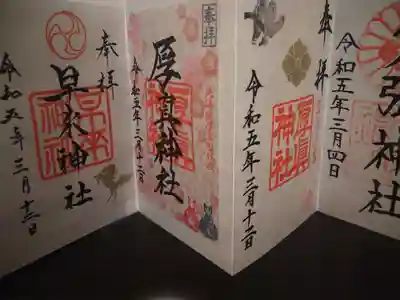 神社
令和五年二月四日
拝
厚眞神社
令和五年三月十二日
奉拝
厚真神社
令和五年三月十二日
奉拝
早来神社
令和五年三月十二日